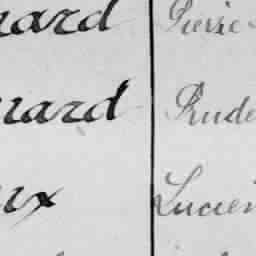 nard Pierre
nard Prude
ux Lucien